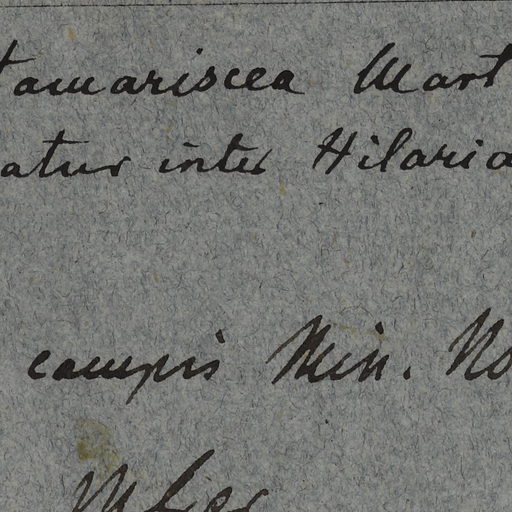 tamariscea Mart
atur inter Hilaria
campis Min. No